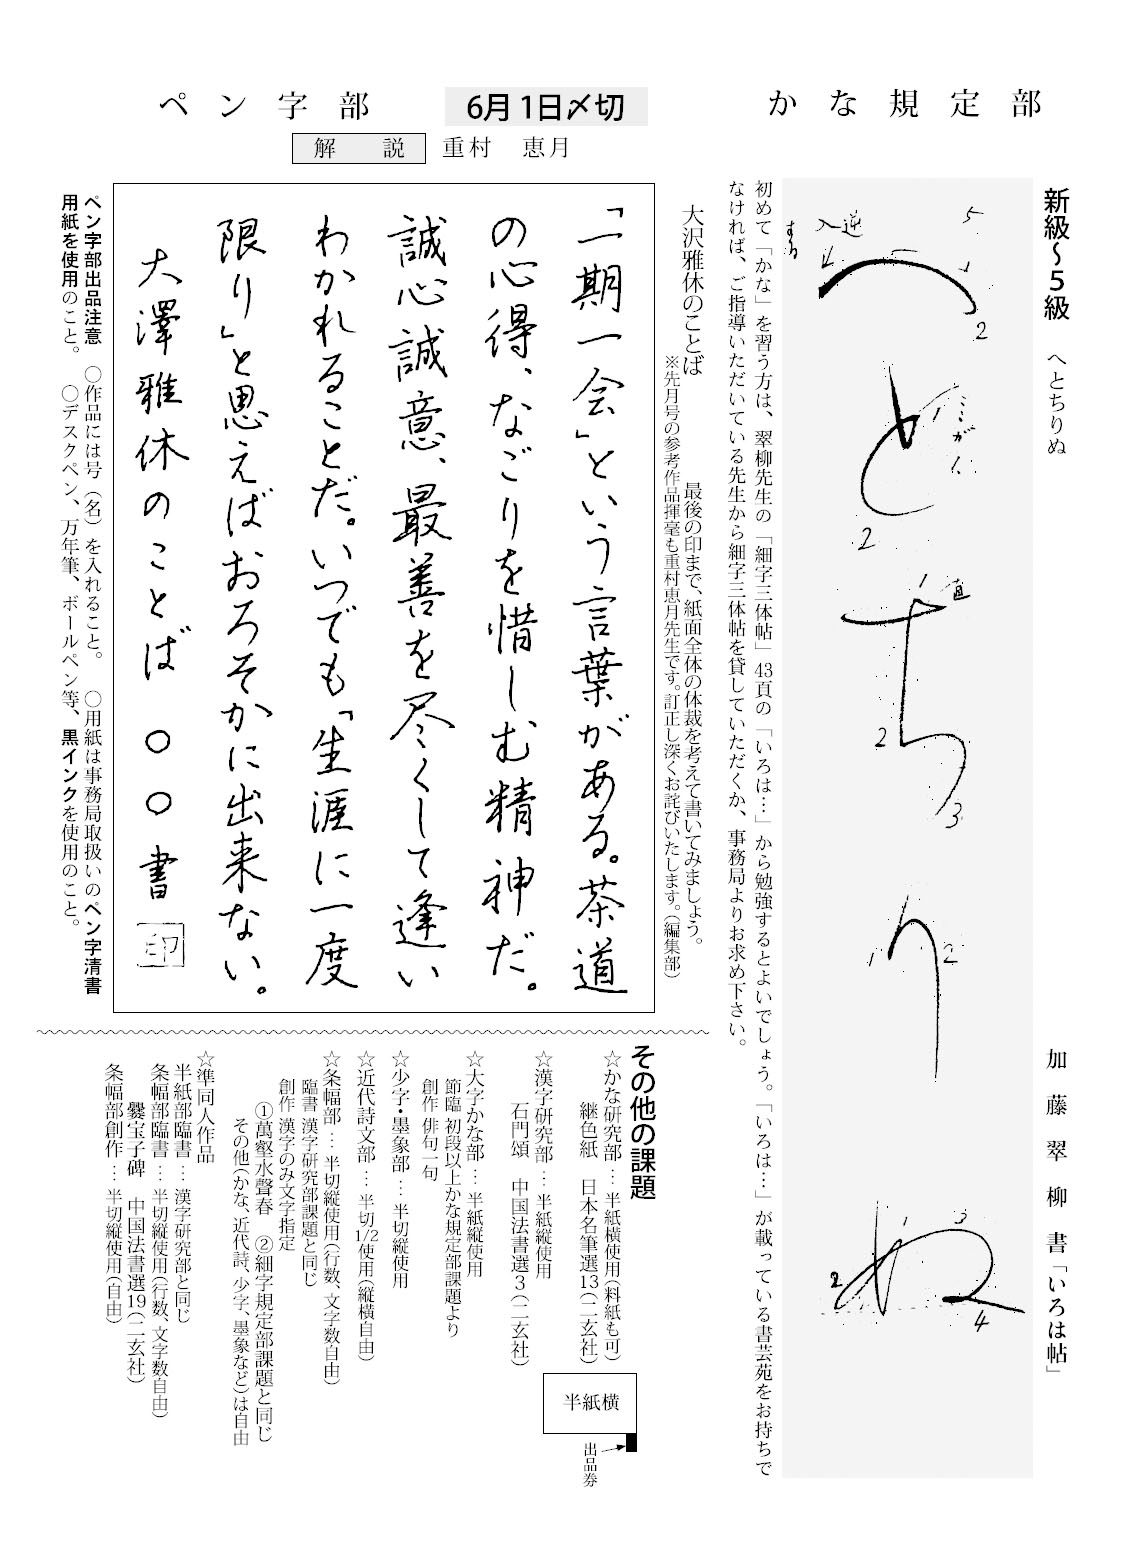 かな規定部
新級〜5級　へとちりぬ
加藤翠柳書「いろは帖」
5
逆
入
1
2
1
2
1
直
2
3
1
2
1
2
3
4
初めて「かな」を習う方は、翠柳先生の「細字三体帖」43頁の「いろは…」から勉強するとよいでしょう。「いろは…」が載っている書芸苑をお持ちで
なければ、ご指導いただいている先生から細字三体帖を貸していただくか、事務局よりお求め下さい。
ペン字部
6月1日〆切
解説　重村　恵月
大沢雅休のことば
最後の印まで、紙面全体の体裁を考えて書いてみましょう。
※先月号の参考作品揮毫も重村恵月先生です。訂正し深くお詫びいたします。（編集部）
「一期一会」という言葉がある。茶道
の心得、なごりを惜しむ精神だ。
誠心誠意、最善を尽くして逢い
わかれることだ。いつでも「生涯に一度
限り」と思えばおろそかに出来ない。
大澤雅休のことば　○○書　印
ペン字部出品注意　○作品には号（名）を入れること。　○用紙は事務局取扱いのペン字清書
用紙を使用のこと。　○デスクペン、万年筆、ボールペン等、黒インクを使用のこと。
その他の課題
☆かな研究部…半紙横使用（料紙も可）
継色紙　日本名筆選13（二玄社）
☆漢字研究部…半紙縦使用
石門頌　中国法書選3（二玄社）
☆大字かな部…半紙縦使用
節臨 初段以上かな規定部課題より
創作 俳句一句
☆少字・墨象部…半切縦使用
☆近代詩文部…半切1/2使用（縦横自由）
☆条幅部…半切縦使用（行数、文字数自由）
臨書 漢字研究部課題と同じ
創作 漢字のみ文字指定
①萬壑水聲春　②細字規定部課題と同じ
その他（かな、近代詩、少字、墨象など）は自由
☆準同人作品
半紙部臨書…漢字研究部と同じ
条幅部臨書…半切縦使用（行数、文字数自由）
爨宝子碑　中国法書選19（二玄社）
条幅部創作…半切縦使用（自由）
半紙横
出品券